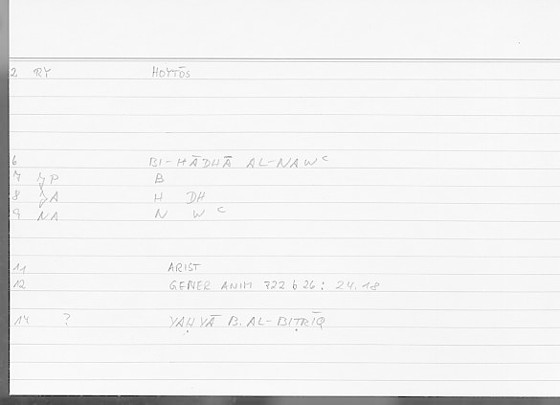 2 RY HOYTŌS
6 BI-HĀDHĀ AL-NAWᶜ
7 JP B
8 JA H DH
9 NA N W ᶜ
11 ARIST
12 GENER ANIM 722 b 26 : 24.18
14 ? YAḤYĀ B. AL-BIṬRĪQ